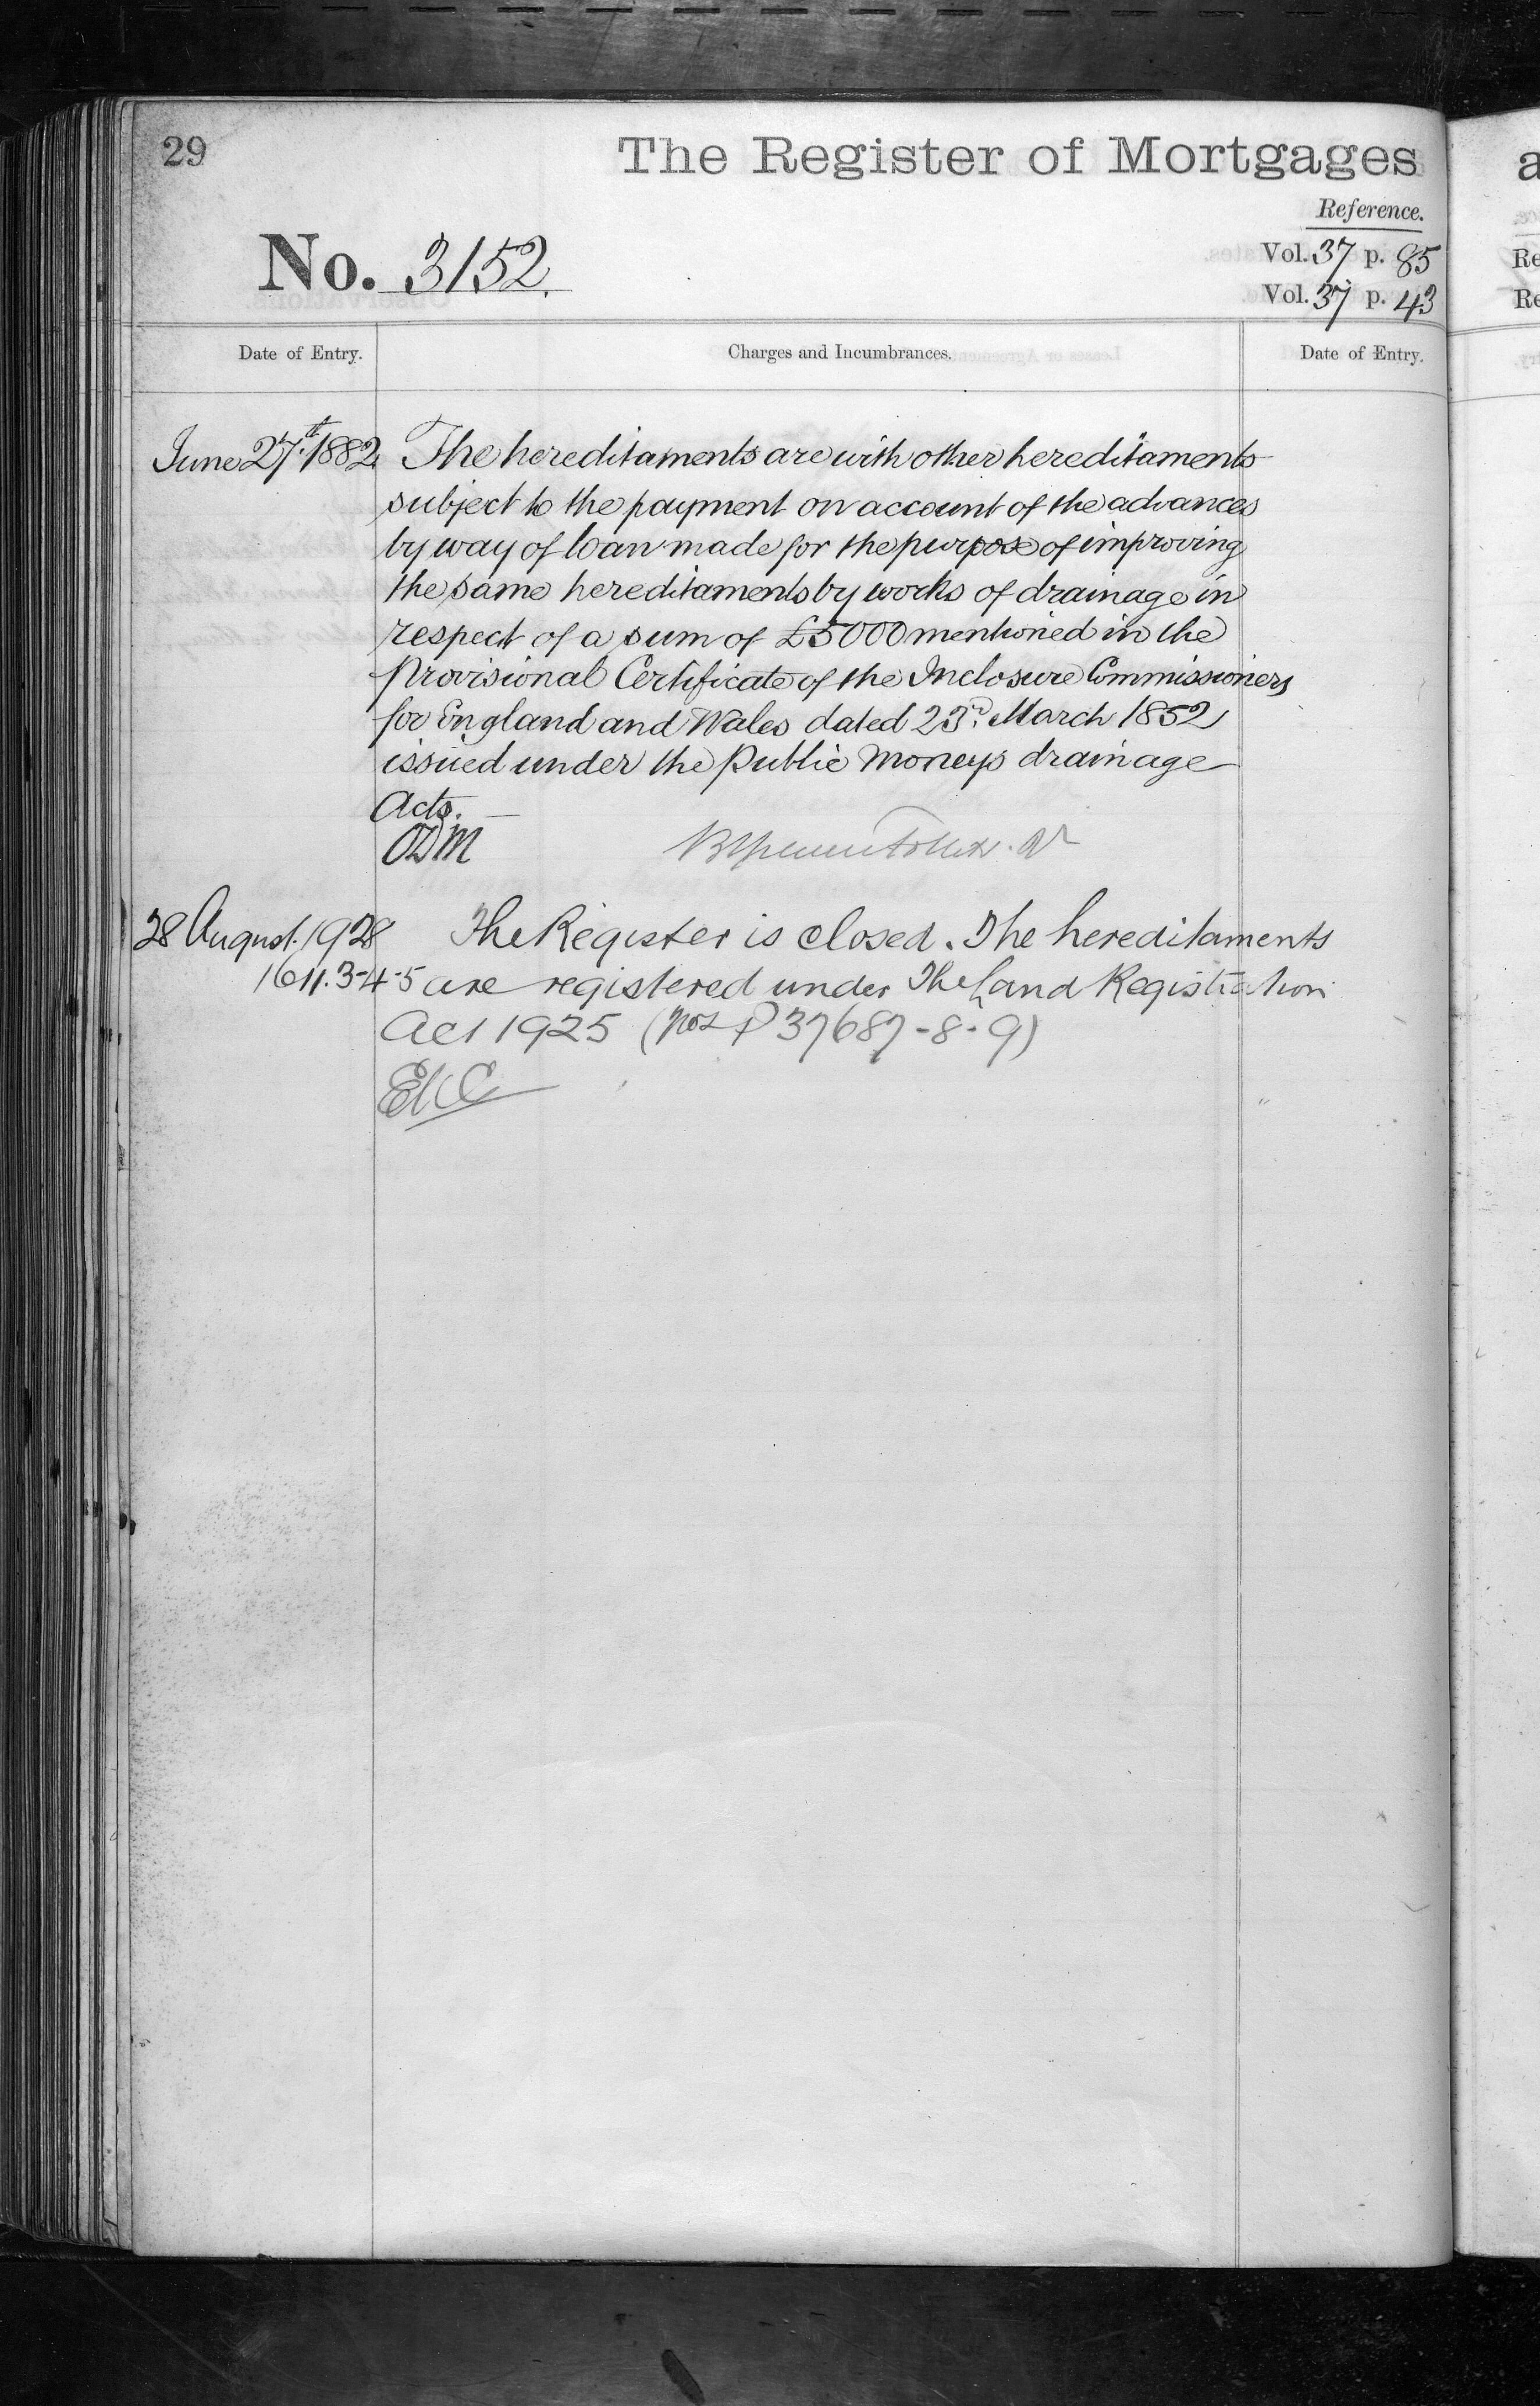 29
The Register of Mortgages
Reference.
No. 3152.
Vol. 37 p. 85
Vol. 37 p. 43
Date of Entry.
Charges and Incumbrances.
Date of Entry.
June 27th. 1882.
The hereditaments are with other hereditaments
subject to the payment on account of the advances
by way of loan made for the purpose of improving
the same hereditaments by works of drainage in
respect of a sum of £5000 mentioned in the
Provisional Certificate of the Inclosure Commissioners
for England and Wales dated 23rd. March 1852
issued under the Public Moneys drainage
Acts.
ODM
28 August. 1928
The Register is closed. The hereditaments
1611.3-4-5
are registered under The Land Registration
Act 1925 (Nos P 37687-8-9)
a
Re
Re